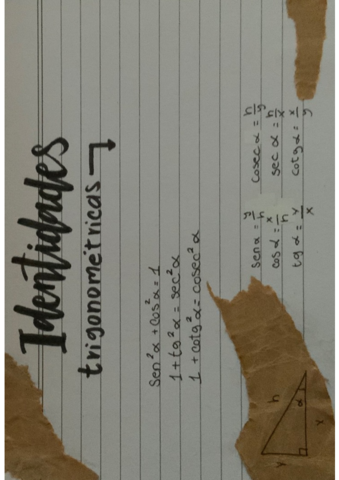 Identidades
trigonométricas
sen²α + cos²α = 1
1 + tg²α = sec²α
1 + cotg²α = cosec²α
sen α = y/h cosec α = h/y
cos α = x/h sec α = h/x
tg α = y/x cotg α = x/y
y h α x